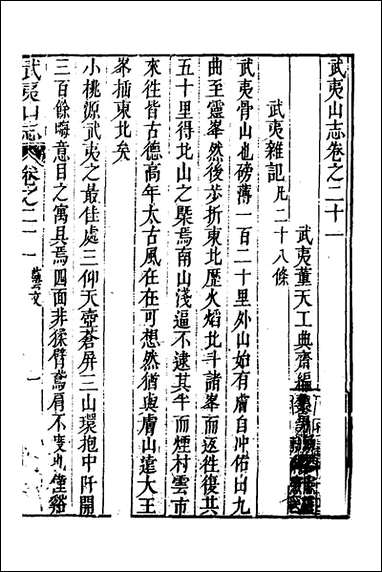 武夷山志卷之二十一
武夷董天工典齋編
武夷雜記凡二十八條
武夷骨山也磅薄一百二十里外山始有膚自冲佑由九
曲至靈峯然後步折東北歷火焰北斗諸峯而返往復其
五十里得北山之槩焉南山淺逼不逮其半而煙村雲市
來徃皆古德高年太古風在在可想然猶與膚山遠大王
峯插東北矣
小桃源武夷之最佳處三仰天壺蒼屏三山環抱中阡開
三百餘畮意目之寓具焉四面非猱臂鳶肩不度也僅谿
武夷山志
卷之二十一
藝文
一